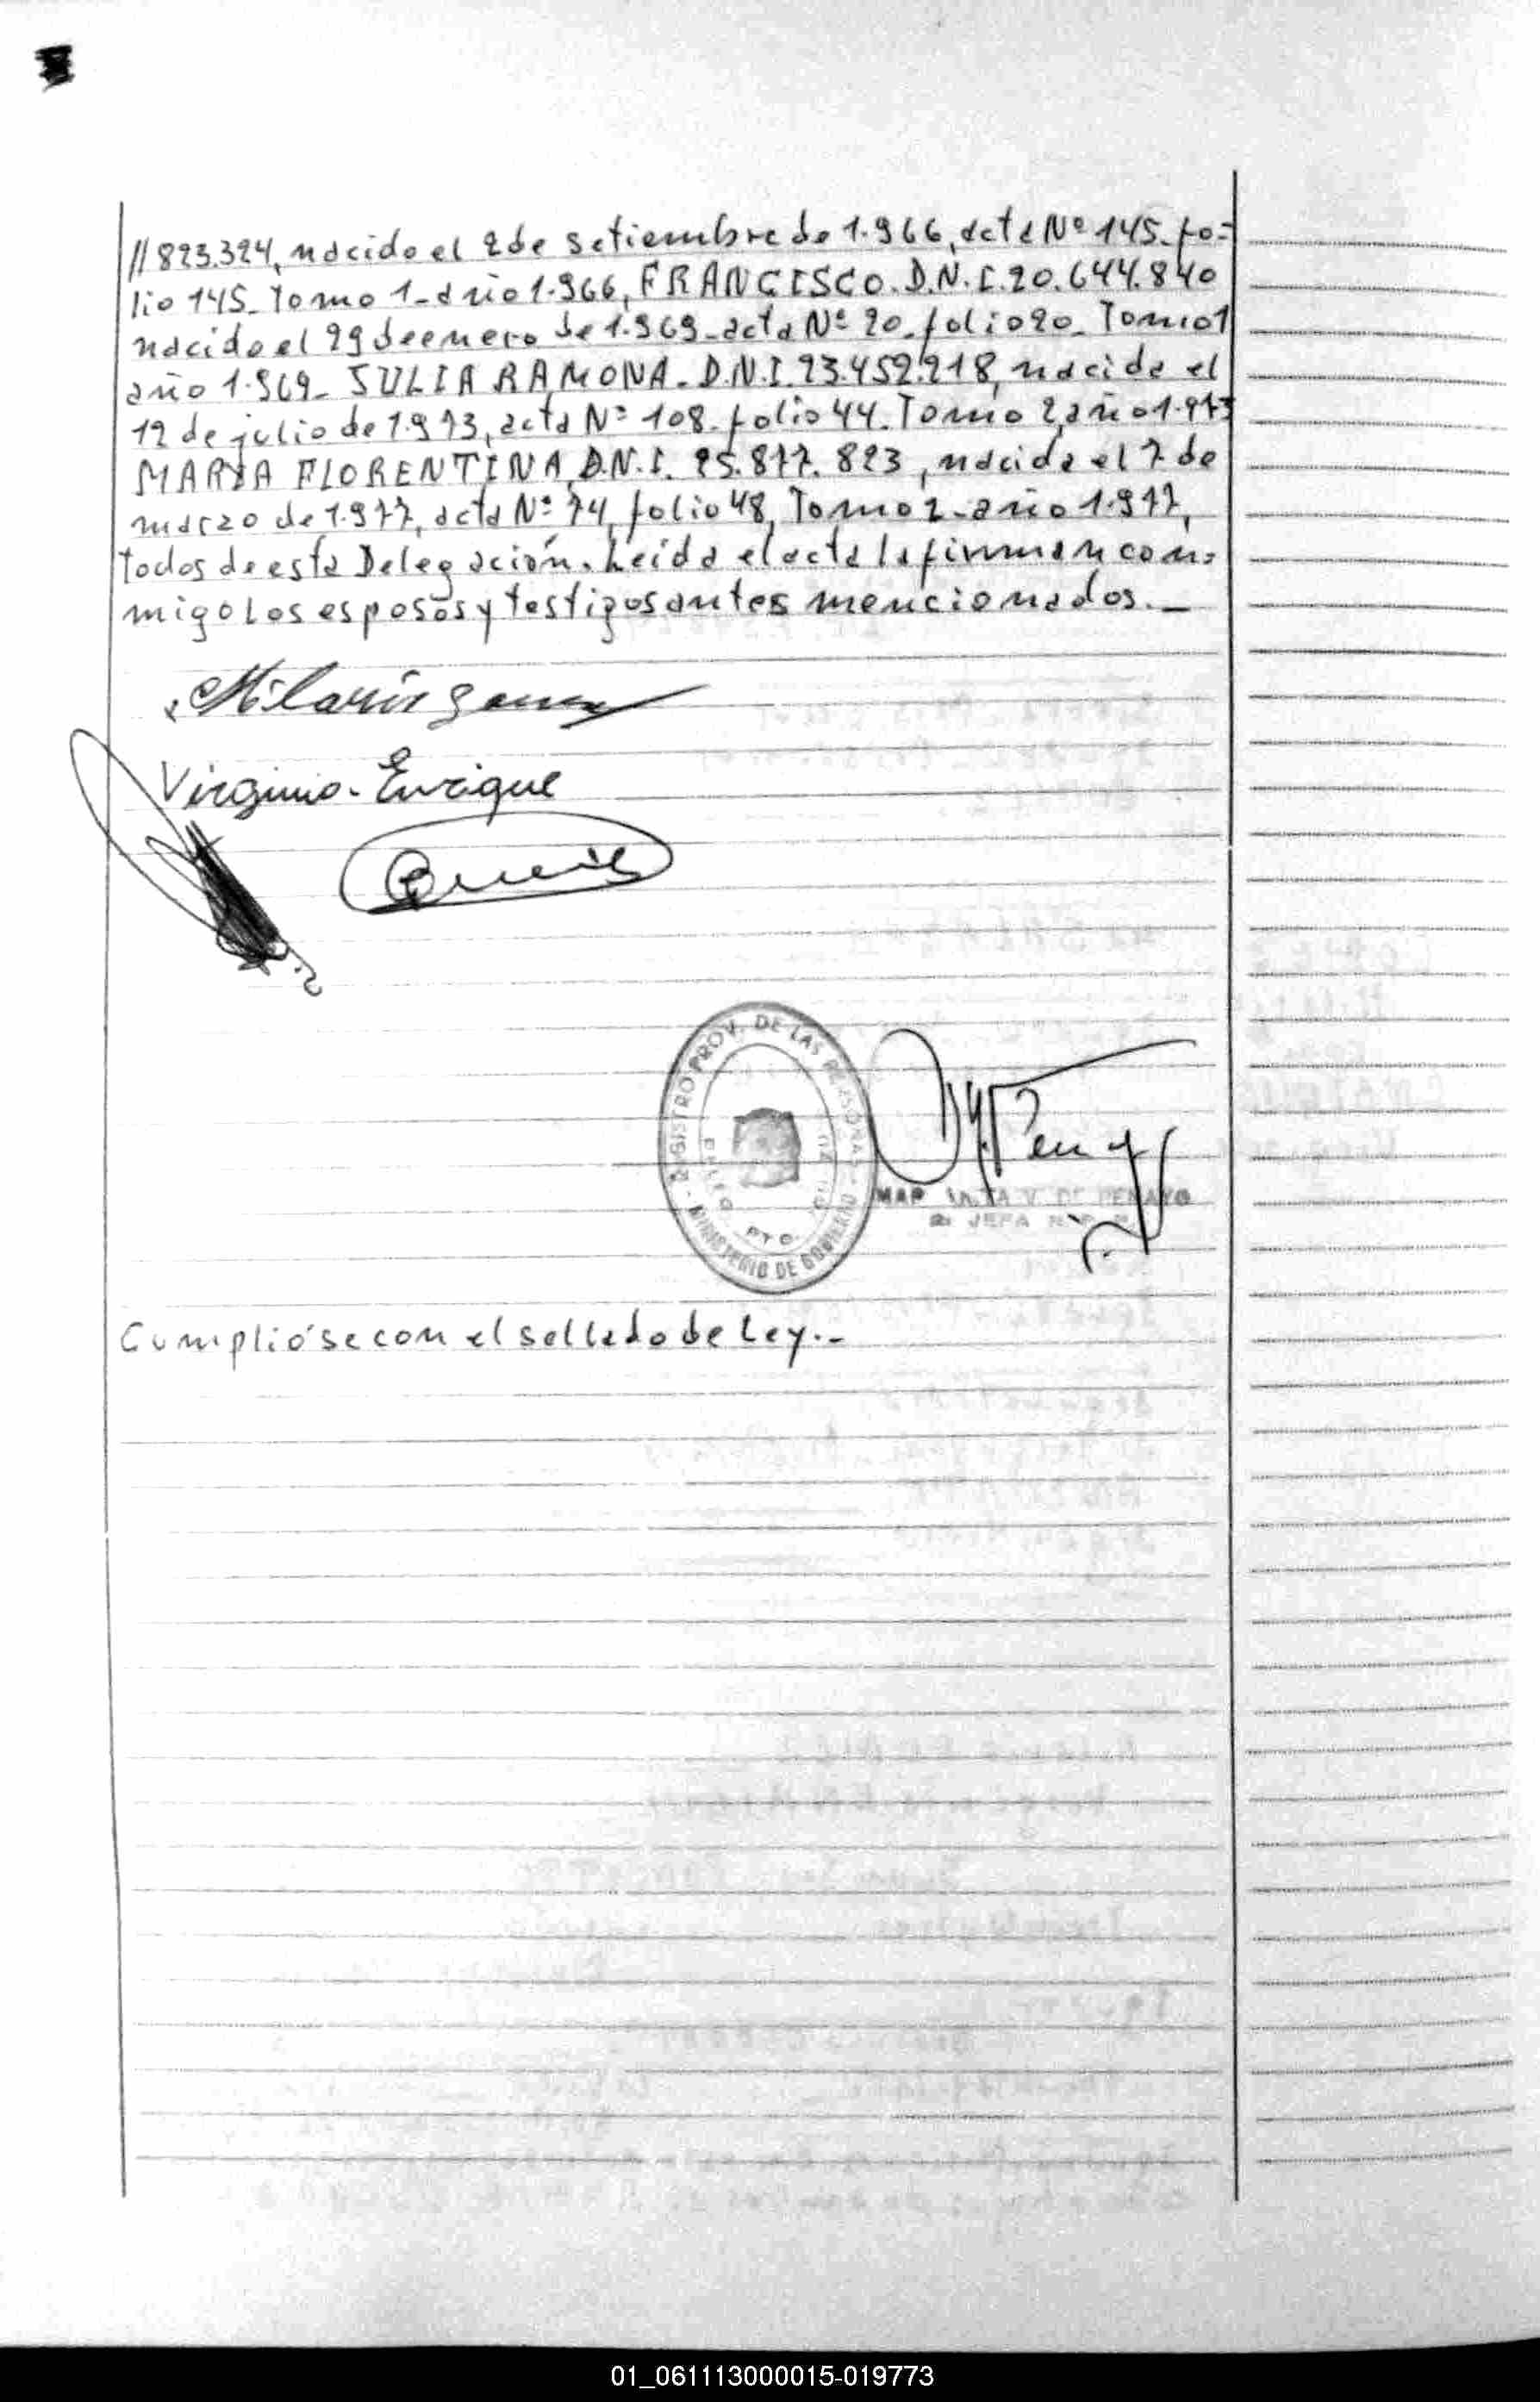 //823.324, nacido el 2 de setiembre de 1.966, acta Nº 145. fo=
lio 145. Tomo 1- año 1.966, FRANCISCO. D.N.I. 20.644.840
nacido el 29 de enero de 1.969- acta Nº 20. folio 20. Tomo 1
año 1.969- JULIA RAMONA. D.N.I. 23.452.218, nacida el
12 de julio de 1.973, acta Nº 108. folio 44. Tomo 2, año 1.973
MARIA FLORENTINA, D.N.I. 25.877.823, nacida el 7 de
marzo de 1.977, acta Nº 74, folio 48, Tomo 2- año 1.977,
todos de esta Delegación. Leida el acta la firman con=
migo los esposos y testigos antes mencionados.-
Hilario
Virginio. Enrique
REGISTRO PROV. DE LAS PERSONAS
MINISTERIO DE GOBIERNO
V. DE PENAYO
JEFA
Cumplióse con el sellado de Ley.-
01_061113000015-019773